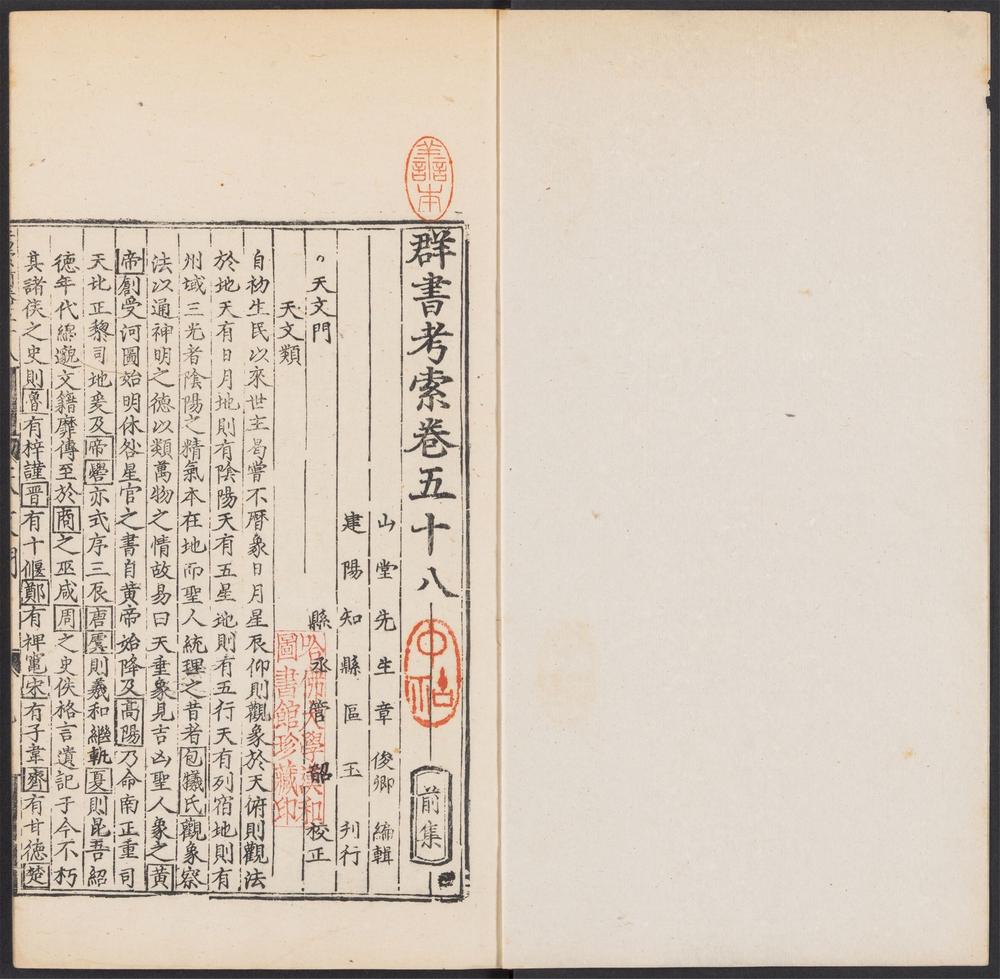 善本
群書考索卷五十八
中祐
前集
山堂先生章俊卿編輯
建陽知縣區玉刋行
縣丞管韶校正
哈佛大學漢和
圖書館珍藏印
天文門
天文類
自初生民以來世主曷嘗不曆象日月星辰仰則觀象於天俯則觀法
於地天有日月地則有陰陽天有五星地則有五行天有列宿地則有
州域三光者陰陽之精氣本在地而聖人統理之昔者包犧氏觀象察
法以通神明之德以類萬物之情故易曰天垂象見吉凶聖人象之黄
帝創受河圖始明休咎星官之書自黄帝始降及高陽乃命南正重司
天北正黎司地爰及帝嚳亦式序三辰唐虞則羲和繼軌夏則昆吾紹
德年代綿邈文籍靡傳至於商之巫咸周之史佚格言遺記于今不朽
其諸侯之史則魯有梓謹晋有十偃鄭有裨竈宋有子韋齊有甘德楚